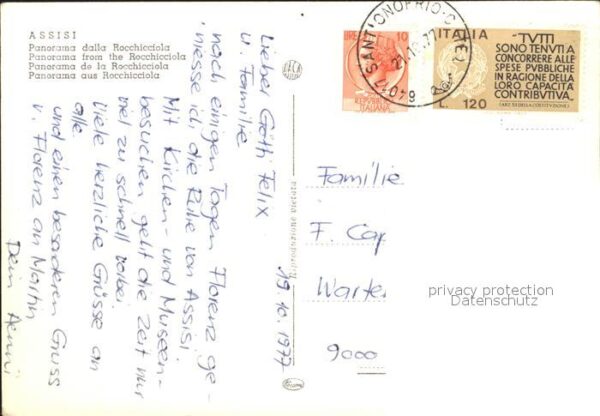 ASSISI
Panorama dalla Rocchicciola
Panorama from the Rocchicciola
Panorama de la Rocchicciola
Panorama aus Rocchicciola
19.10.1977
Lieber Götti Felix
u. Familie
nach einigen Tagen Florenz ge-
niesse ich die Ruhe von Assisi.
Mit Kirchen- und Museen-
besuchen geht die Zeit nur
viel zu schnell vorbei.
Viele herzliche Grüsse an
alle
und einen besonderen Gruss
v. Florenz an Martin
Dein
LIRE 10
REPVBBLICA
ITALIANA
S. ANT'ONOFRIO
ITALIA
TVTTI
SONO TENVTI A
CONCORRERE ALLE
SPESE PVBBLICHE
IN RAGIONE DELLA
LORO CAPACITÀ
CONTRIBVTIVA
(ART. 53 DELLA COSTITVZIONE)
L. 120
Familie
F. Cap
Warter
9000
privacy protection
Datenschutz